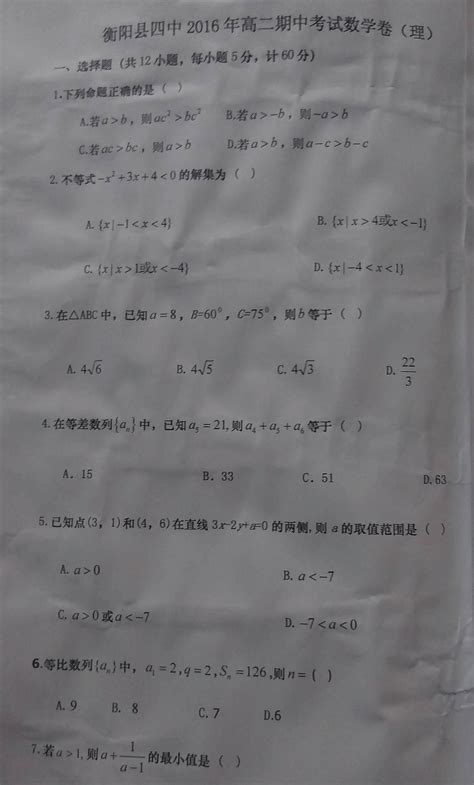 衡阳县四中2016年高二期中考试数学卷（理）
一、选择题（共12小题，每小题5分，计60分）
1.下列命题正确的是（ ）
A.若a>b，则ac²>bc² B.若a>-b，则-a>b
C.若ac>bc，则a>b D.若a>b，则a-c>b-c
2.不等式-x²+3x+4<0的解集为（ ）
A.{x|-1<x<4} B.{x|x>4或x<-1}
C.{x|x>1或x<-4} D.{x|-4<x<1}
3.在△ABC中，已知a=8，B=60⁰，C=75⁰，则b等于（ ）
A.4√6 B.4√5 C.4√3 D.22/3
4.在等差数列{aₙ}中，已知a₅=21,则a₄+a₅+a₆等于（ ）
A．15 B．33 C．51 D.63
5.已知点(3，1)和(4，6)在直线3x-2y+a=0的两侧,则a的取值范围是（ ）
A.a>0 B.a<-7
C.a>0或a<-7 D.-7<a<0
6.等比数列{aₙ}中，a₁=2,q=2,Sₙ=126,则n=（ ）
A.9 B. 8 C.7 D.6
7.若a>1,则a+1/(a-1)的最小值是（ ）